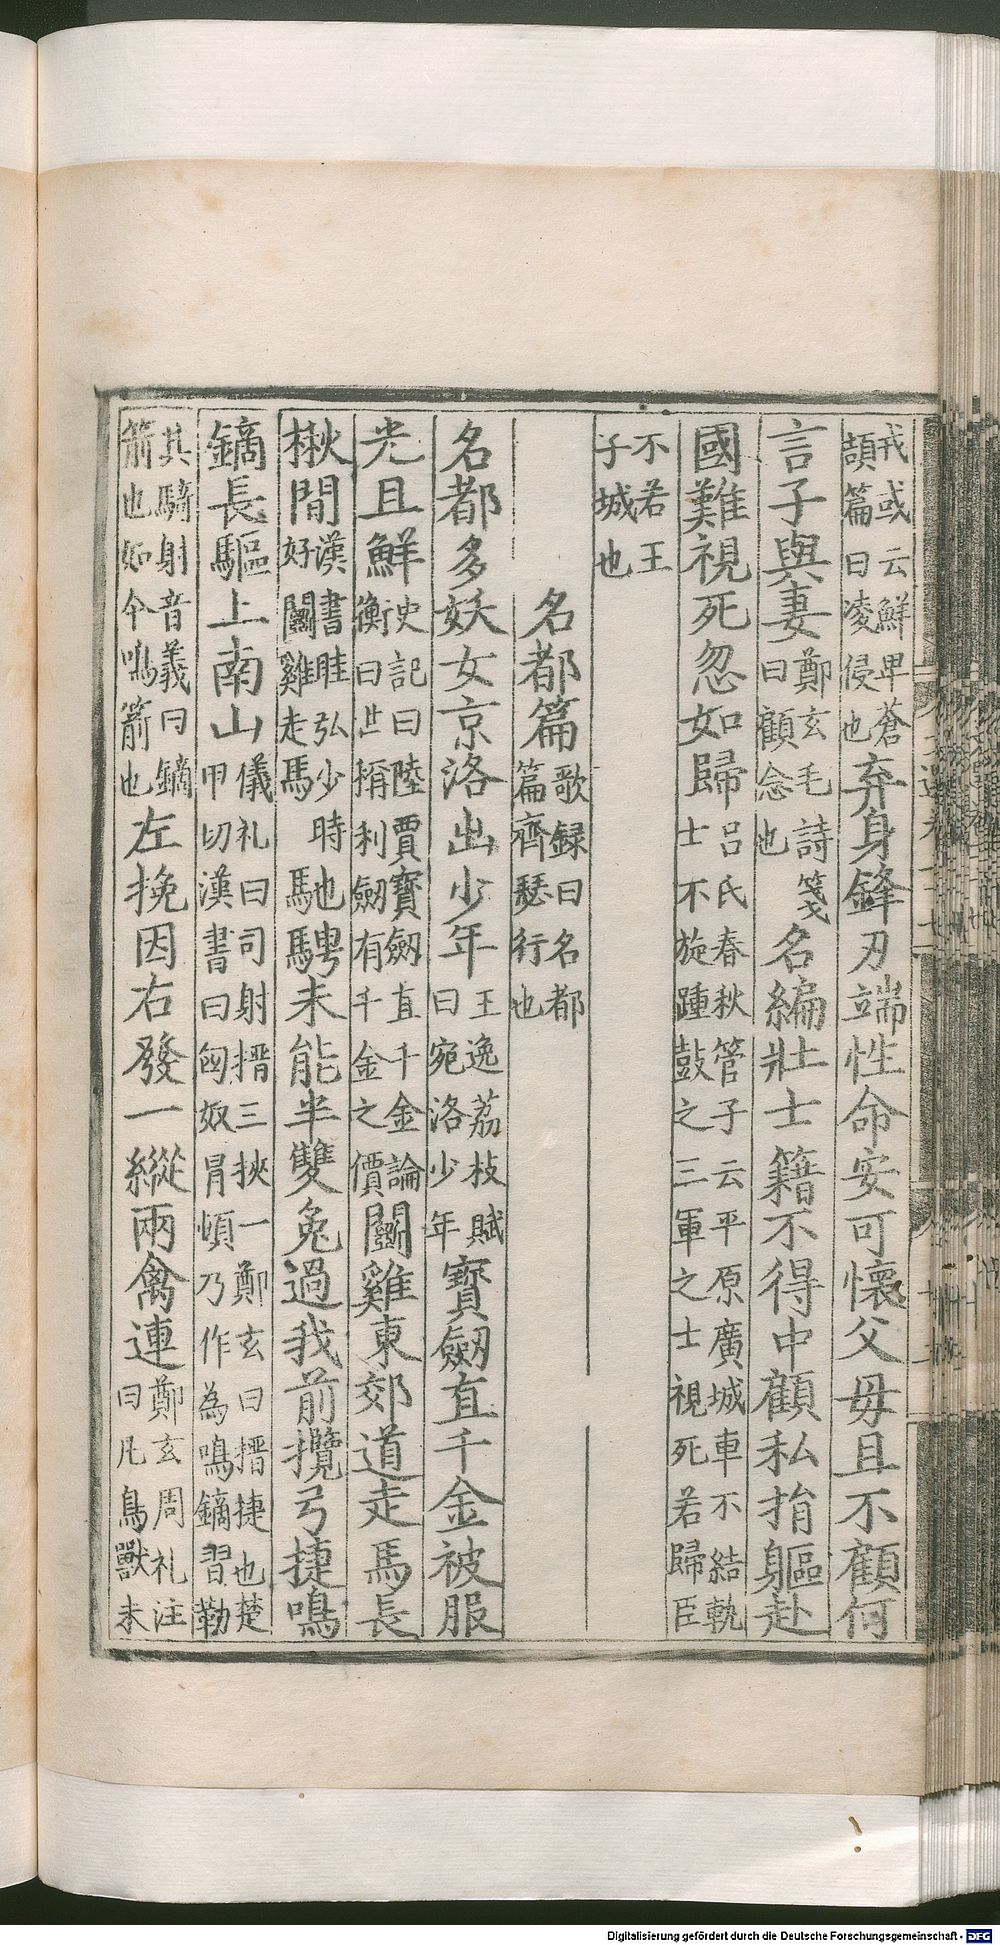 戎或云鮮卑蒼頡篇曰凌侵也弃身鋒刃端性命安可懷父毋且不顧何
言子與妻鄭玄毛詩箋曰顧念也名編壯士籍不得中顧私捐軀赴
國難視死忽如歸呂氏春秋管子云平原廣城車不結軌士不旋踵鼓之三軍之士視死若歸臣
不若王子城也
名都篇歌録曰名都篇齊瑟行也
名都多妖女京洛出少年王逸荔枝賦曰宛洛少年寳劔直千金被服
光且鮮史記曰陸賈寳劔直千金論衡曰世稱利劔有千金之價鬭雞東郊道走馬長
楸間漢書眭弘少時好鬭雞走馬也馳騁未能半雙兔過我前攬弓捷鳴
鏑長驅上南山儀礼曰司射搢三挾一鄭玄曰搢捷也楚甲切漢書曰匈奴冐頓乃作為鳴鏑習勒
其騎射音義曰鏑箭也如今鳴箭也左挽因右發一縱兩禽連鄭玄周礼注曰凡鳥獸未
Digitalisierung gefördert durch die Deutsche Forschungsgemeinschaft - DFG